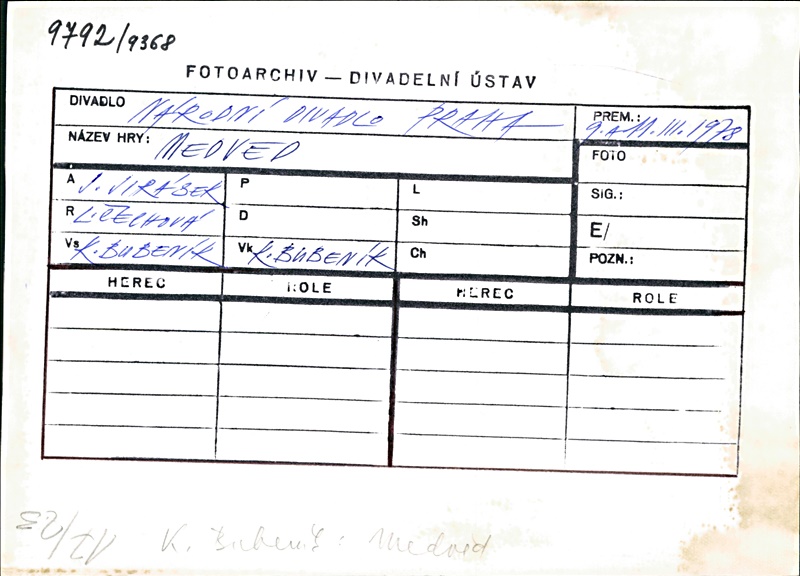 9792/9368
FOTOARCHIV — DIVADELNÍ ÚSTAV
DIVADLO NÁRODNÍ DIVADLO PRAHA
PREM.: 9. a 11. III. 1978
NÁZEV HRY: MEDVED
FOTO
A J. JIRÁSEK P L
SIG.:
R LIČECHOVÁ D Sh
E/
Vs K. BUBENÍK Vk K. BUBENÍK Ch
POZN.:
HEREC ROLE HEREC ROLE
K. Bubeník: Medvěd